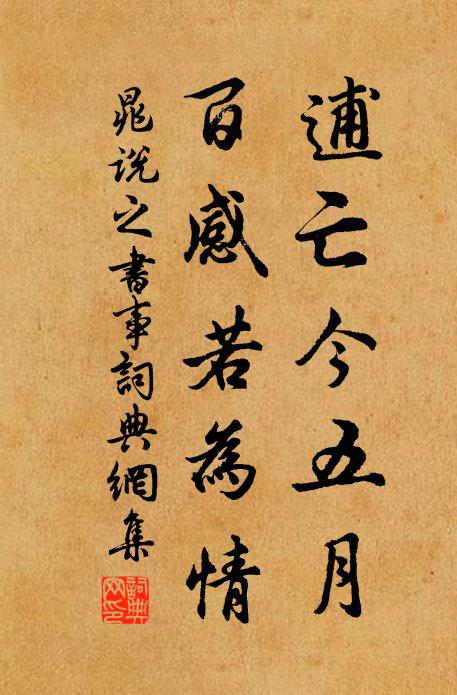 逋亡今五月
百感若為情
晁說之書事詞典網集
詞典網印